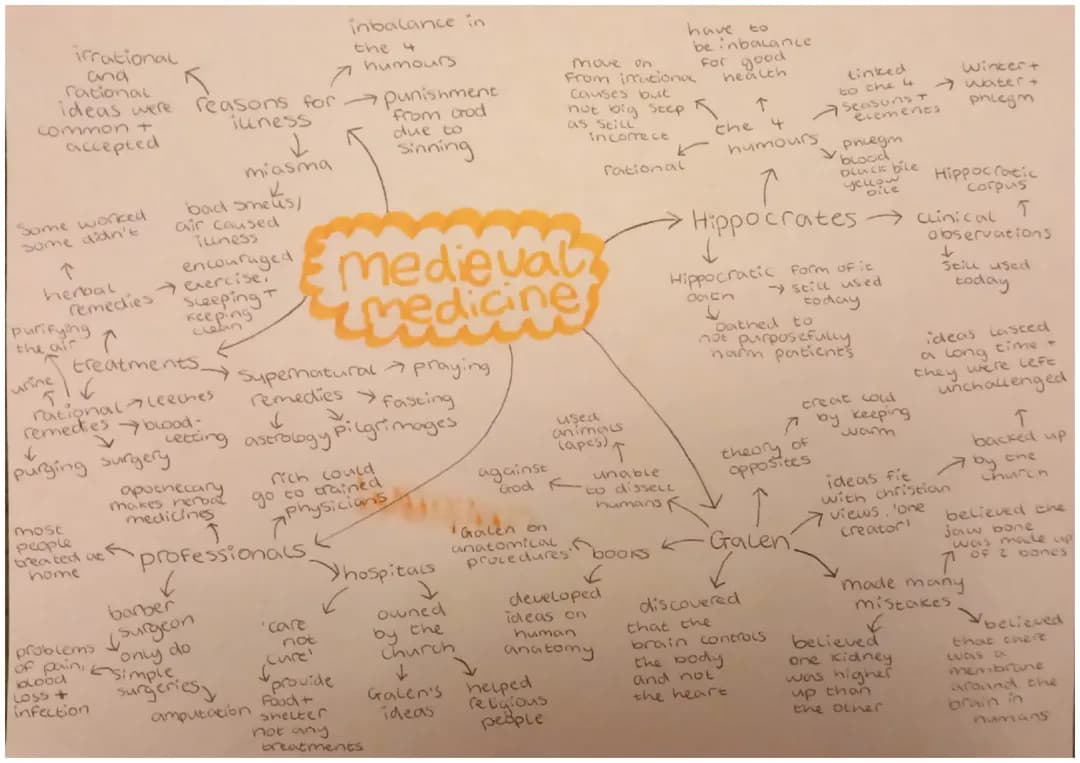 medieval
medicine
reasons for
illness
irrational
and
rational
ideas were
common +
accepted
inbalance in
the 4
humours
punishment
from God
due to
sinning
miasma
bad smells/
air caused
illness
treatments
herbal
remedies
some worked
some didn't
encouraged
exercise,
sleeping +
keeping
clean
rational
remedies
purifying
the air
urine
leeches
blood-
letting
surgery
purging
supernatural
remedies
praying
fasting
pilgrimages
astrology
professionals
apothecary
makes herbal
medicines
rich could
go to trained
physicians
most
people
treated at
home
barber
surgeon
only do
simple
surgeries
problems
of pain,
blood
loss +
infection
amputation
hospitals
'care
not
cure'
provide
food +
shelter
not any
treatments
owned
by the
church
Galen's
ideas
helped
religious
people
Hippocrates
the 4
humours
rational
move on
from irrational
causes but
not big step
as still
incorrect
have to
be inbalance
for good
health
linked
to the 4
seasons +
elements
winter +
water +
phlegm
phlegm
blood
black bile
yellow
bile
clinical
observations
Hippocratic
corpus
still used
today
Hippocratic
oath
form of it
still used
today
oathed to
not purposefully
harm patients
Galen
theory of
opposites
creat cold
by keeping
warm
ideas fit
with christian
views, 'one
creator'
backed up
by the
church
ideas lasted
a long time +
they were left
unchallenged
made many
mistakes
believed the
jaw bone
was made up
of 2 bones
believed
one kidney
was higher
up than
the other
believed
that there
was a
membrane
around the
brain in
humans
discovered
that the
brain controls
the body
and not
the heart
books
'Galen on
anatomical
procedures'
developed
ideas on
human
anatomy
unable
to dissell
humans
used
animals
(apes)
against
God